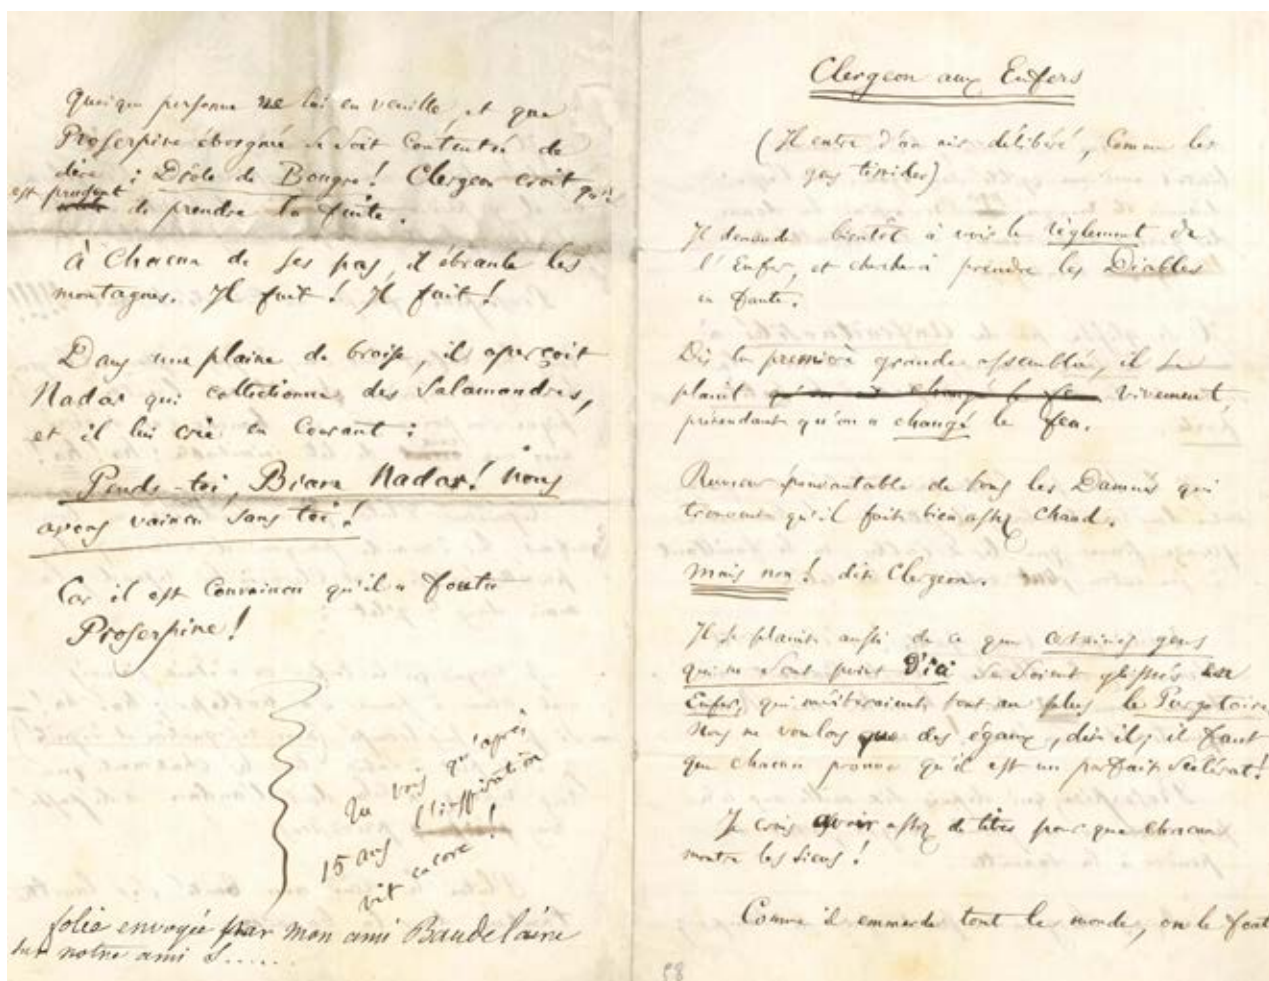 Quoique personne ne lui en veuille, et que
Proserpine éborgnée se soit contentée de
dire : Drôle de Bougre! Clergeon croit qu'il
est prudent de prendre la fuite.
À chacun de ses pas, il ébranle les
montagnes. Il fuit! Il fuit!
Dans une plaine de braise, il aperçoit
Nadar qui collectionne des Salamandres,
et il lui crie en courant :
Pends-toi, Brave Nadar! nous
avons vaincu sans toi!
Car il est convaincu qu'il a foutu
Proserpine!
Tu vois qu'après
15 ans l'inspiration
vit encore!
folie envoyée par mon ami Baudelaire
sur notre ami S......
Clergeon aux Enfers
(Il entre d'un air délibéré, comme les
gens timides)
Il demande bientôt à voir le règlement de
l'Enfer, et cherche à prendre les Diables
en faute.
Dès la première grande assemblée, il se
plaint vivement,
prétendant qu'on a changé le feu.
Rumeur épouvantable de tous les Damnés qui
trouvent qu'il fait bien assez chaud.
Mais non! dit Clergeon.
Il se plaint aussi de ce que certaines gens
qui ne sont point D'ici se soient glissés en
Enfer, qui mériteraient tout au plus le Purgatoire
Nous ne voulons que des égaux, dit-il; il faut
que chacun prouve qu'il est un parfait scélérat!
Je crois avoir assez de titres pour que chacun
montre les siens!
Comme il emmerde tout le monde, on le fout